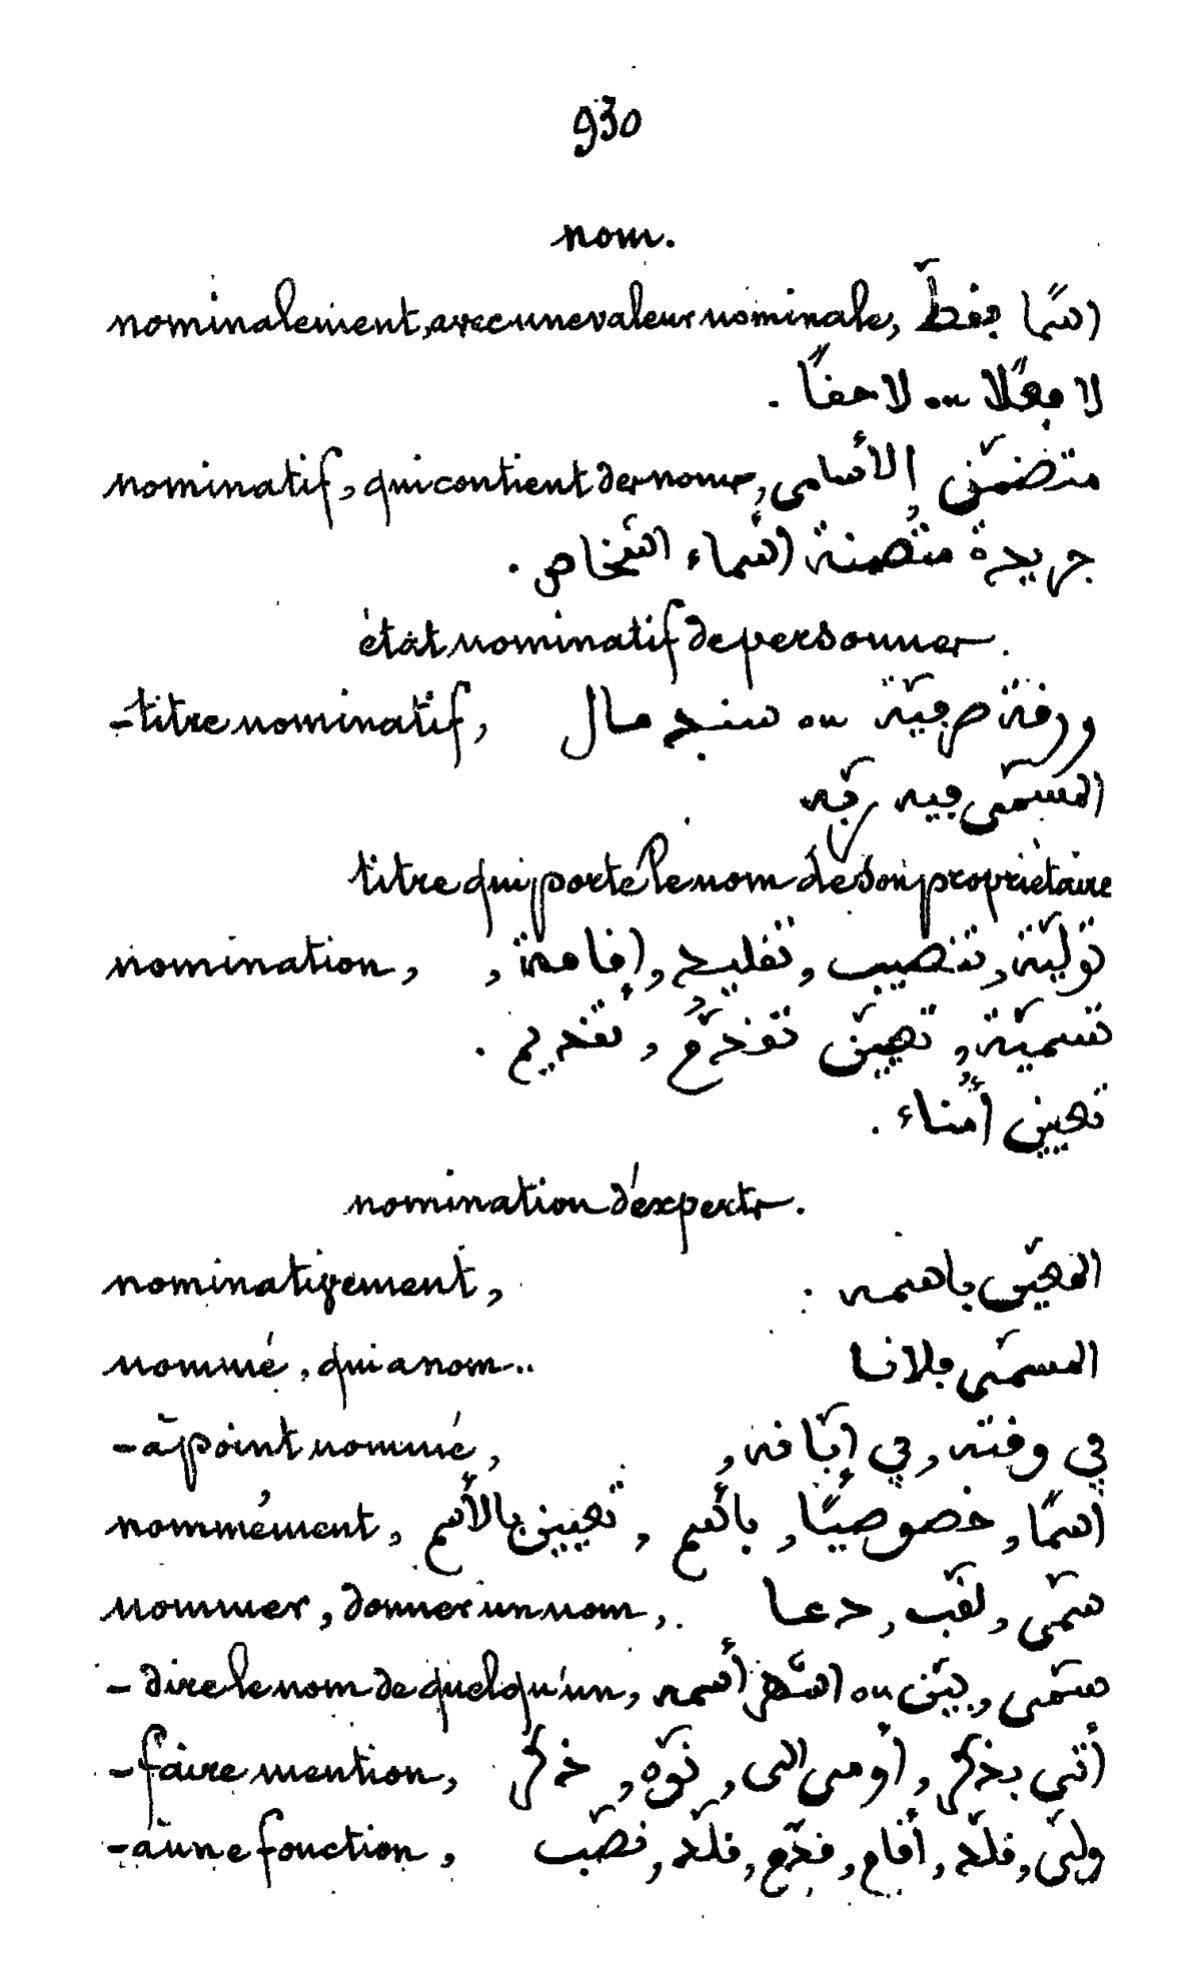 930
nom.
nominalement, avec une valeur nominale, اسمًا فقط
لا فعلًا ou لا حقًا .
nominatif, qui contient des noms, متضمّن الأسامى
جريدة متضمنة اسماء اشخاص .
état nominatif de personnes .
- titre nominatif, ورقة صرفيّة ou سند مال
المسمّى فيه ربّه
titre qui porte le nom de son propriétaire
nomination, توليّة, تنصيب, تقليد, إقامة,
تسميّة, تعيّن تقدّم, تقديم .
تعيين أمناء .
nomination d'experts .
nominativement, المعيّن باسمه .
nommé, qui a nom .. المسمّى فلانا
- à point nommé, في وقته, في إبّانه,
nommément, اسمًا, خصوصيًّا, بأسم, تعيين بالأسم
nommer, donner un nom, سمّى, لقّب, دعا
- dire le nom de quelqu'un, سمّى, بيّن ou اشهر أسمه
- faire mention, أتى بذكر, أومى الى, نوّه, ذكر
- à une fonction, ولّى, قلّد, أقام, قدّم, قلّد, نصّب